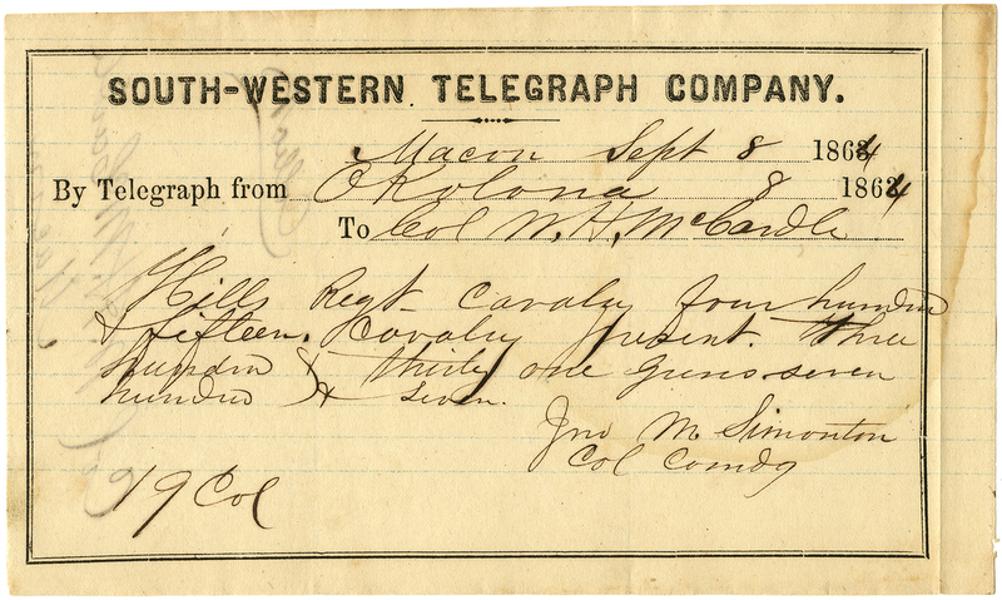 SOUTH-WESTERN TELEGRAPH COMPANY.
Macon Sept 8 1864
By Telegraph from Okolona 8 1864
To Col W. H. McCardle
Hills Regt Cavalry four hundred
& fifteen. Cavalry present. three
hundred & thirty one guns seven
hundred & seven.
Jno M Simonton
Col Comdg
19 Col